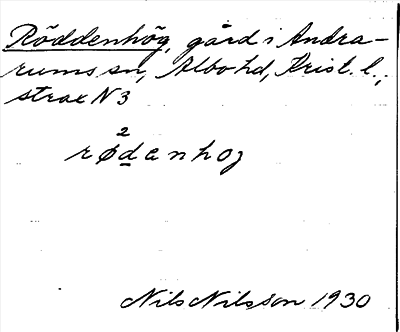 Röddenhög, gård i Andra-
rums sn, Albo hd, Krist. l.,
strax N 3
2
rødenhog
Nils Nilsson 1930